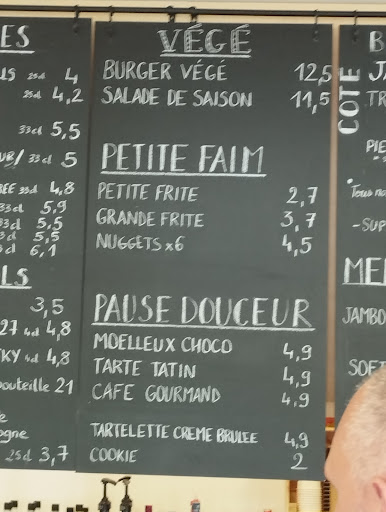 ES
25cl 4
25cl 4,2
33cl 5,5
33cl 5
33cl 4,8
33cl 5,9
33cl 5,5
5,5
6,1
LS
3,5
27 4cl 4,8
KY 4cl 4,8
bouteille 21
25cl 3,7
VÉGÉ
BURGER VÉGÉ 12,5
SALADE DE SAISON 11,5
PETITE FAIM
PETITE FRITE 2,7
GRANDE FRITE 3,7
NUGGETS x6 4,5
PAUSE DOUCEUR
MOELLEUX CHOCO 4,9
TARTE TATIN 4,9
CAFE GOURMAND 4,9
TARTELETTE CREME BRULEE 4,9
COOKIE 2
COTE
B
J
TR
PIE
*Tous no
-SUP
ME
JAMBO
SOFT